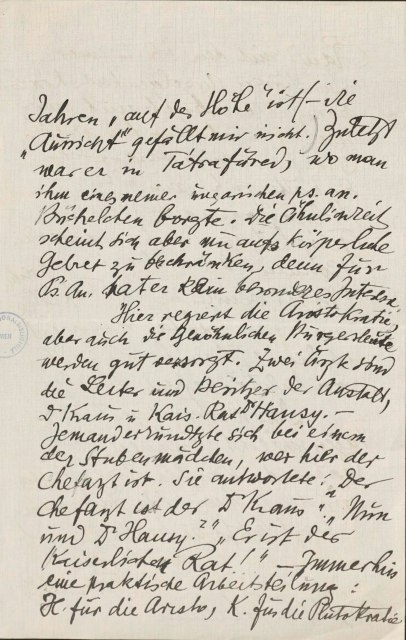 Jahren „auf der Höhe" ist) – die
„Aussicht" gefällt mir nicht. Zuletzt
war er in Tátrafüred, wo man
ihm eines meiner ungarischen ps. an.
Büchelchen borgte. Die Ähnlichkeit
scheint sich aber nur aufs Körperliche
Gebiet zu beschränken, denn für
Ps. An. hat er kein besonderes Interesse
Hier regiert die Aristokratie,
aber auch die gewöhnlichen Bürgersleute
werden gut versorgt. Zwei Ärzte sind
die Leiter und Besitzer der Anstalt,
Dr Kraus u Kais. Rat Dr Hansy. –
Jemand erkundigte sich bei einem
der Stubenmädchen, wer hier der
Chefarzt ist. Sie antwortete: „Der
Chefarzt ist der Dr Kraus". „Nun
und Dr Hansy?" „Er ist der
Kaiserliche Rat!" – Immerhin
eine praktische Arbeitsteilung:
H. für die Aristo, K. für die Plutokratie